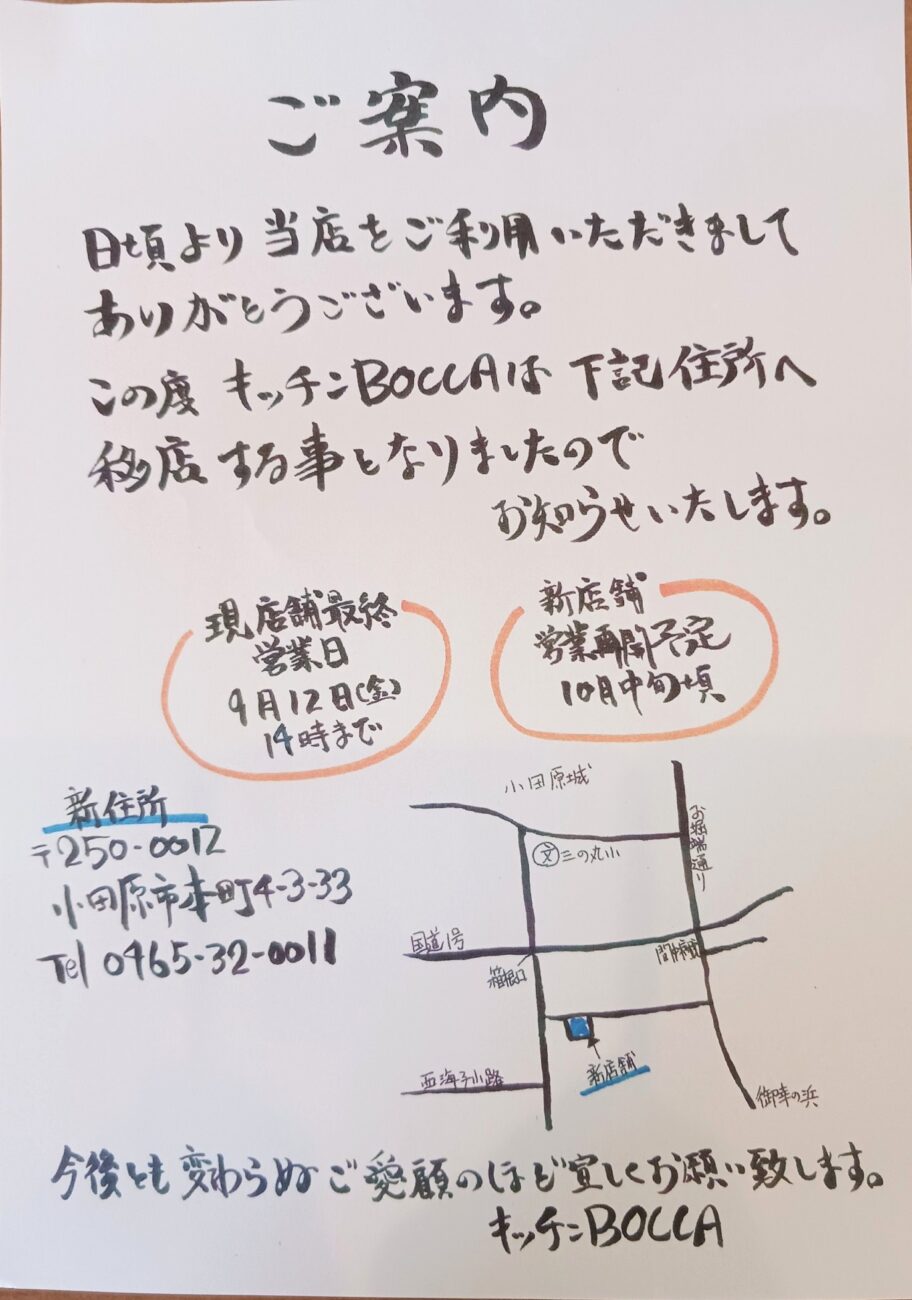 ご案内
日頃より当店をご利用いただきまして
ありがとうございます。
この度 キッチンBOCCAは 下記住所へ
移店する事となりましたので
お知らせいたします。
現店舗最終
営業日
9月12日(金)
14時まで
新店舗
営業再開予定
10月中旬頃
新住所
〒250-0012
小田原市本町4-3-33
Tel 0465-32-0011
小田原城
お堀端通り
文 三の丸小
国道1号
箱根口
新店舗
西海子小路
御幸の浜
今後とも変わらぬご愛顧のほど宜しくお願い致します。
キッチンBOCCA